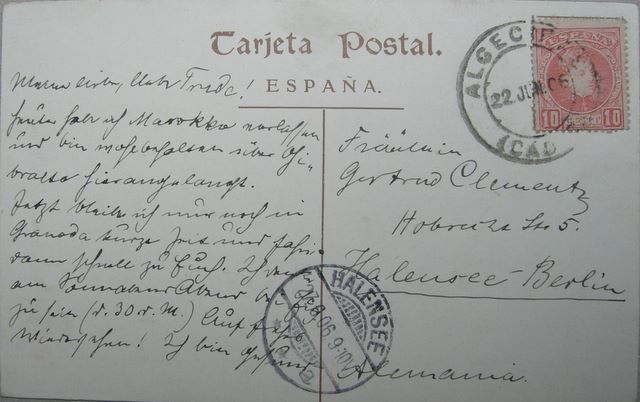 Tarjeta Postal.
ESPAÑA.
ALGECIRAS
22 JUN 06
(CADIZ)
ESPAÑA
10 10
Meine liebe, liebe Trude!
Heute hab ich Marokko verlassen
und bin wohlbehalten über Gi-
braltar hier angelangt.
Jetzt bleibe ich nur noch in
Granada kurze Zeit und fahre
dann schnell zu Euch. Ich
am Sonnabend Abend
zu sein (d. 30. d. M.) Auf
Wiedersehen! Ich bin gesund
Fräulein
Gertrud Clementz
Hobrecht Str 5.
Halensee-Berlin
Alemania.
HALENSEE
06 9-10V